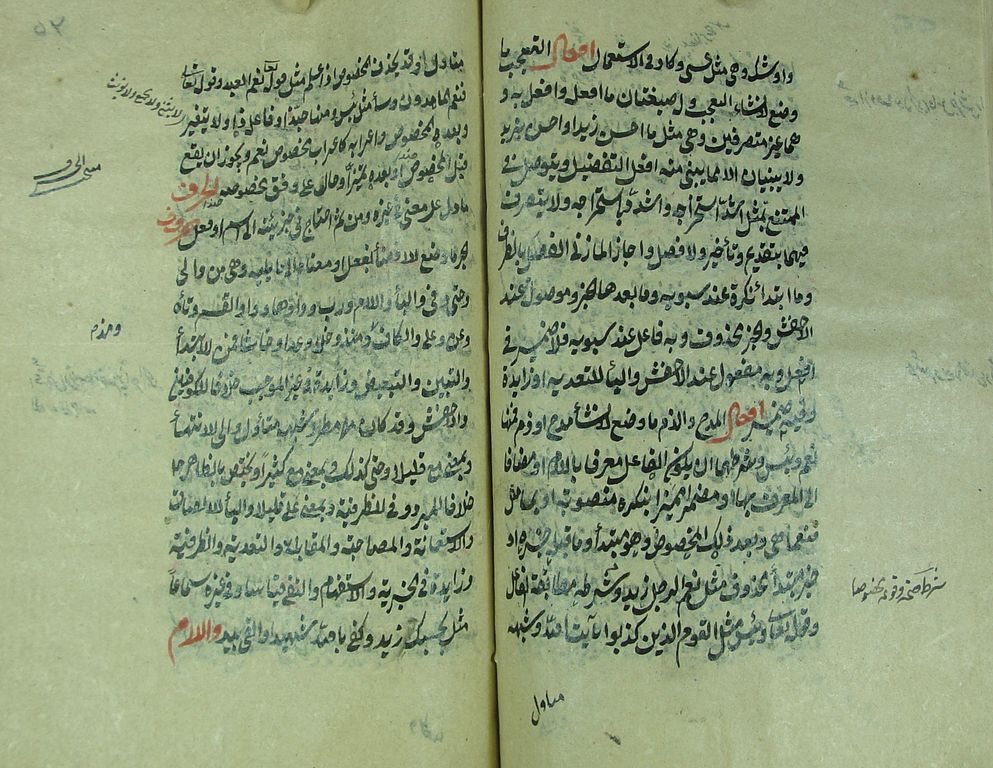 واوشك وهى مثل عسى وكاد فى الاستعمال افعال التعجب ما
وضع لانشاء التعجب وله صيغتان ما افعله وافعل به و
هما غير متصرفين وهى مثل ما احسن زيدا واحسن بزيد
ولا يبنيان الا مما يبنى منه افعل التفضيل ويتوصل فى
الممتنع بمثل ما اشد استخراجه واشدد باستخراجه ولا يتصرف
فيهما بتقديم وتأخير ولا فصل واجاز المازنى الفصل بالظرف
وما ابتداء نكرة عند سيبويه وما بعدها الخبر وموصولة عند
الاخفش والخبر محذوف وبه فاعل عند سيبويه فلا ضمير فى
افعل وبه مفعول عند الاخفش والباء للتعدية او زايدة
ففيه ضمير افعال المدح والذم ما وضع لانشاء مدح او ذم فمنها
نعم وبئس وشرطهما ان يكون الفاعل معرفا باللام او مضافا
الى المعرف بها او مضمرا مميزا بنكرة منصوبة او بما مثل
فنعما هى وبعد ذلك المخصوص وهو مبتدأ وما قبله خبره او
خبر مبتدأ محذوف مثل نعم الرجل زيد وشرطه مطابقة الفاعل
وقوله تعالى وبئس مثل القوم الذين كذبوا بآيات الله وشبهه
شرط صحة وقوعه مخصوصا
متأول
متأول وقد يحذف المخصوص اذا علم مثل قوله تعالى نعم العبد وقوله تعالى
فنعم الماهدون وساء مثل بئس ومنها حبذا وفاعله ذا ولا يتغير
وبعده المخصوص واعرابه كاعراب مخصوص نعم ويجوز ان يقع
قبل المخصوص او بعده تمييز او حال على وفق مخصوصه الحرف
ما دل على معنى فى غيره ومن ثم احتاج فى جزئيته الى اسم او فعل حروف
الجر ما وضع للافضاء بفعل او معناه الى ما يليه وهى من والى
وحتى وفى والباء واللام ورب وواوها وواو القسم وتاؤه
وعن وعلى والكاف ومذ ومنذ وخلا وعدا وحاشا فمن للابتداء
والتبيين والتبعيض وزايدة فى غير الموجب خلافا للكوفيين
والاخفش وقد كان من مطر وشبهه متأول والى للانتهاء
وبمعنى مع قليلا وحتى كذلك وبمعنى مع كثيرا ويختص بالظاهر
خلافا للمبرد وفى للظرفية وبمعنى على قليلا والباء للالصاق
والاستعانة والمصاحبة والمقابلة والتعدية والظرفية
وزايدة فى الخبر فى الاستفهام والنفى قياسا وفى غيره سماعا
مثل بحسبك زيد وكفى بالله شهيدا والقى بيده واللام